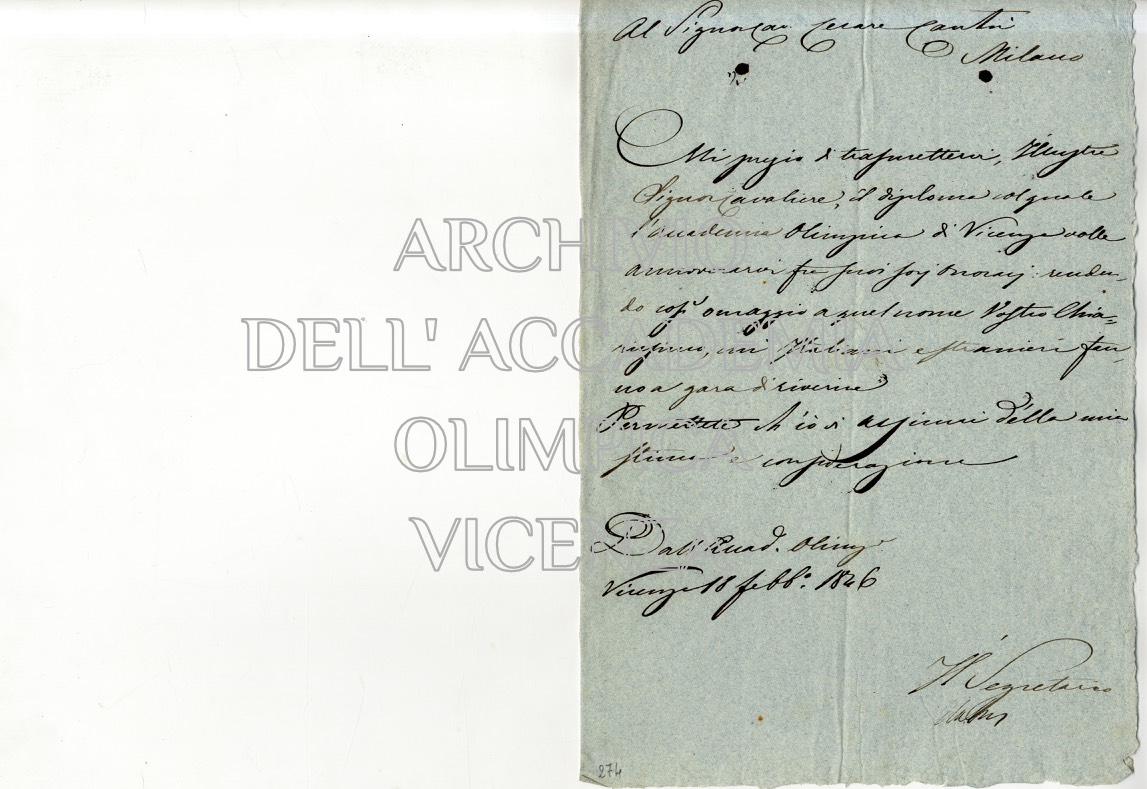 Al Signor Cav. Cesare Cantù
Milano
Mi pregio di trasmettervi, Illustre
Signor Cavaliere, il diploma col quale
l'Accademia Olimpica di Vicenza volle
annoverarvi fra suoi socj onorarj: renden-
do così omaggio a quel nome Vostro Chia-
rissimo, cui Italiani e stranieri fan-
no a gara di riverire
Permettete ch'io vi assicuri della mia
stima e considerazione
Dall'Accad. Olimp.
Vicenza 18 febb.o 1846
Il Segretario
274
ARCHIVIO
DELL' ACCADEMIA
OLIMPICA
VICENZA